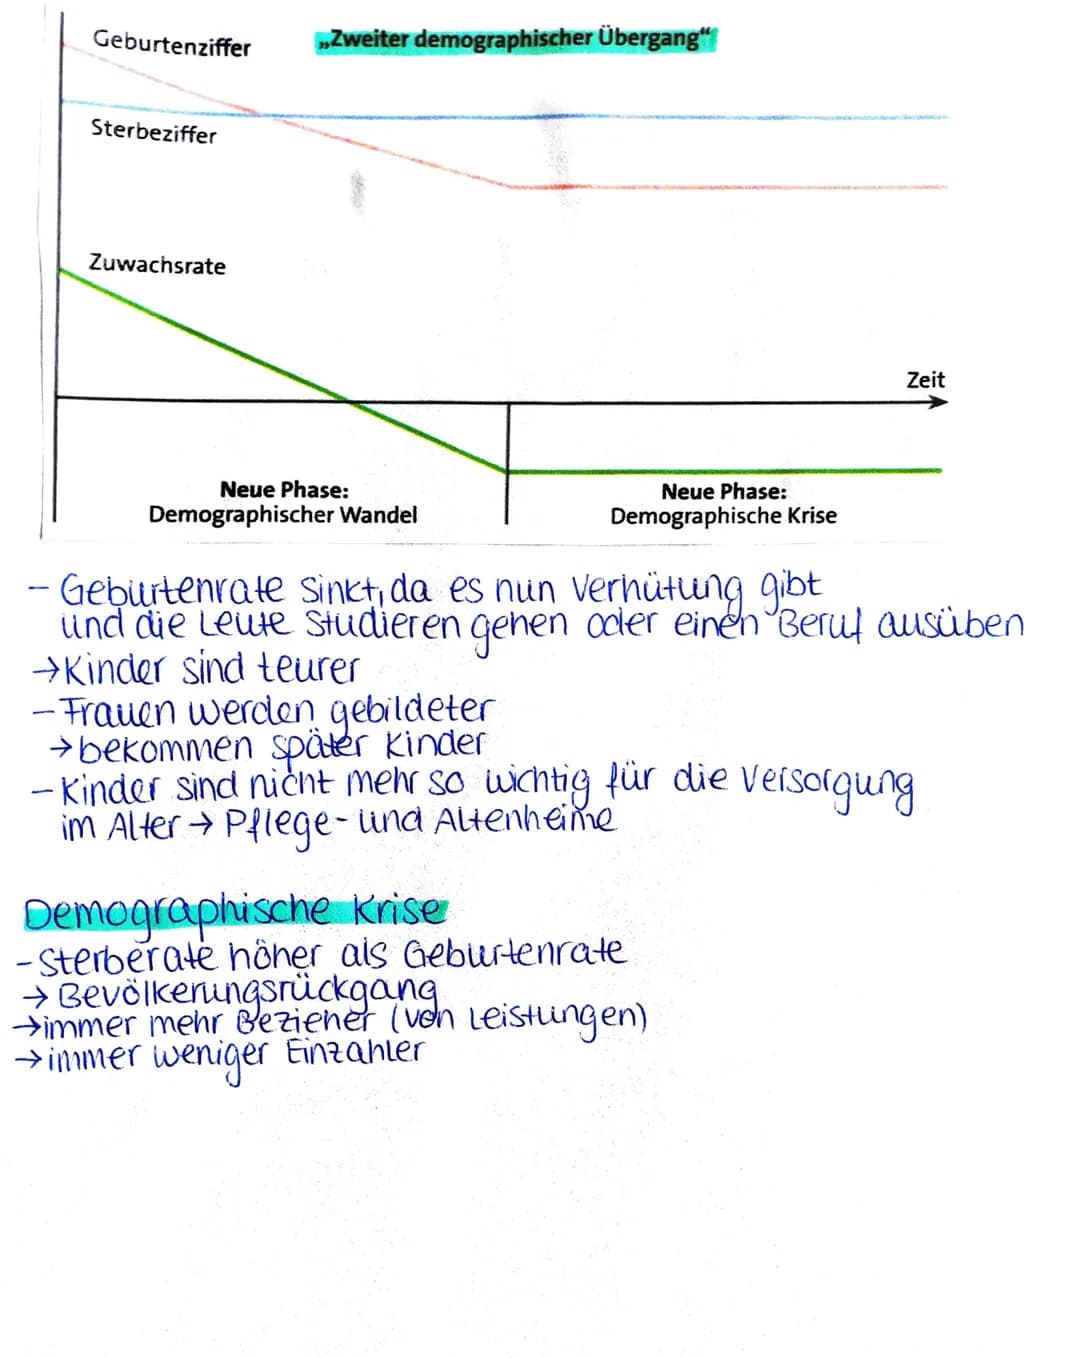 Geburtenziffer
„Zweiter demographischer Übergang“
Sterbeziffer
Zuwachsrate
Zeit
Neue Phase:
Demographischer Wandel
Neue Phase:
Demographische Krise
- Geburtenrate sinkt, da es nun Verhütung gibt
und die Leute Studieren gehen oder einen Beruf ausüben
→ Kinder sind teurer
- Frauen werden gebildeter
→ bekommen später Kinder
- Kinder sind nicht mehr so wichtig für die Versorgung
im Alter → Pflege- und Altenheime
Demographische Krise
- Sterberate höher als Geburtenrate
→ Bevölkerungsrückgang
→ immer mehr Bezieher (von Leistungen)
→ immer weniger Einzahler